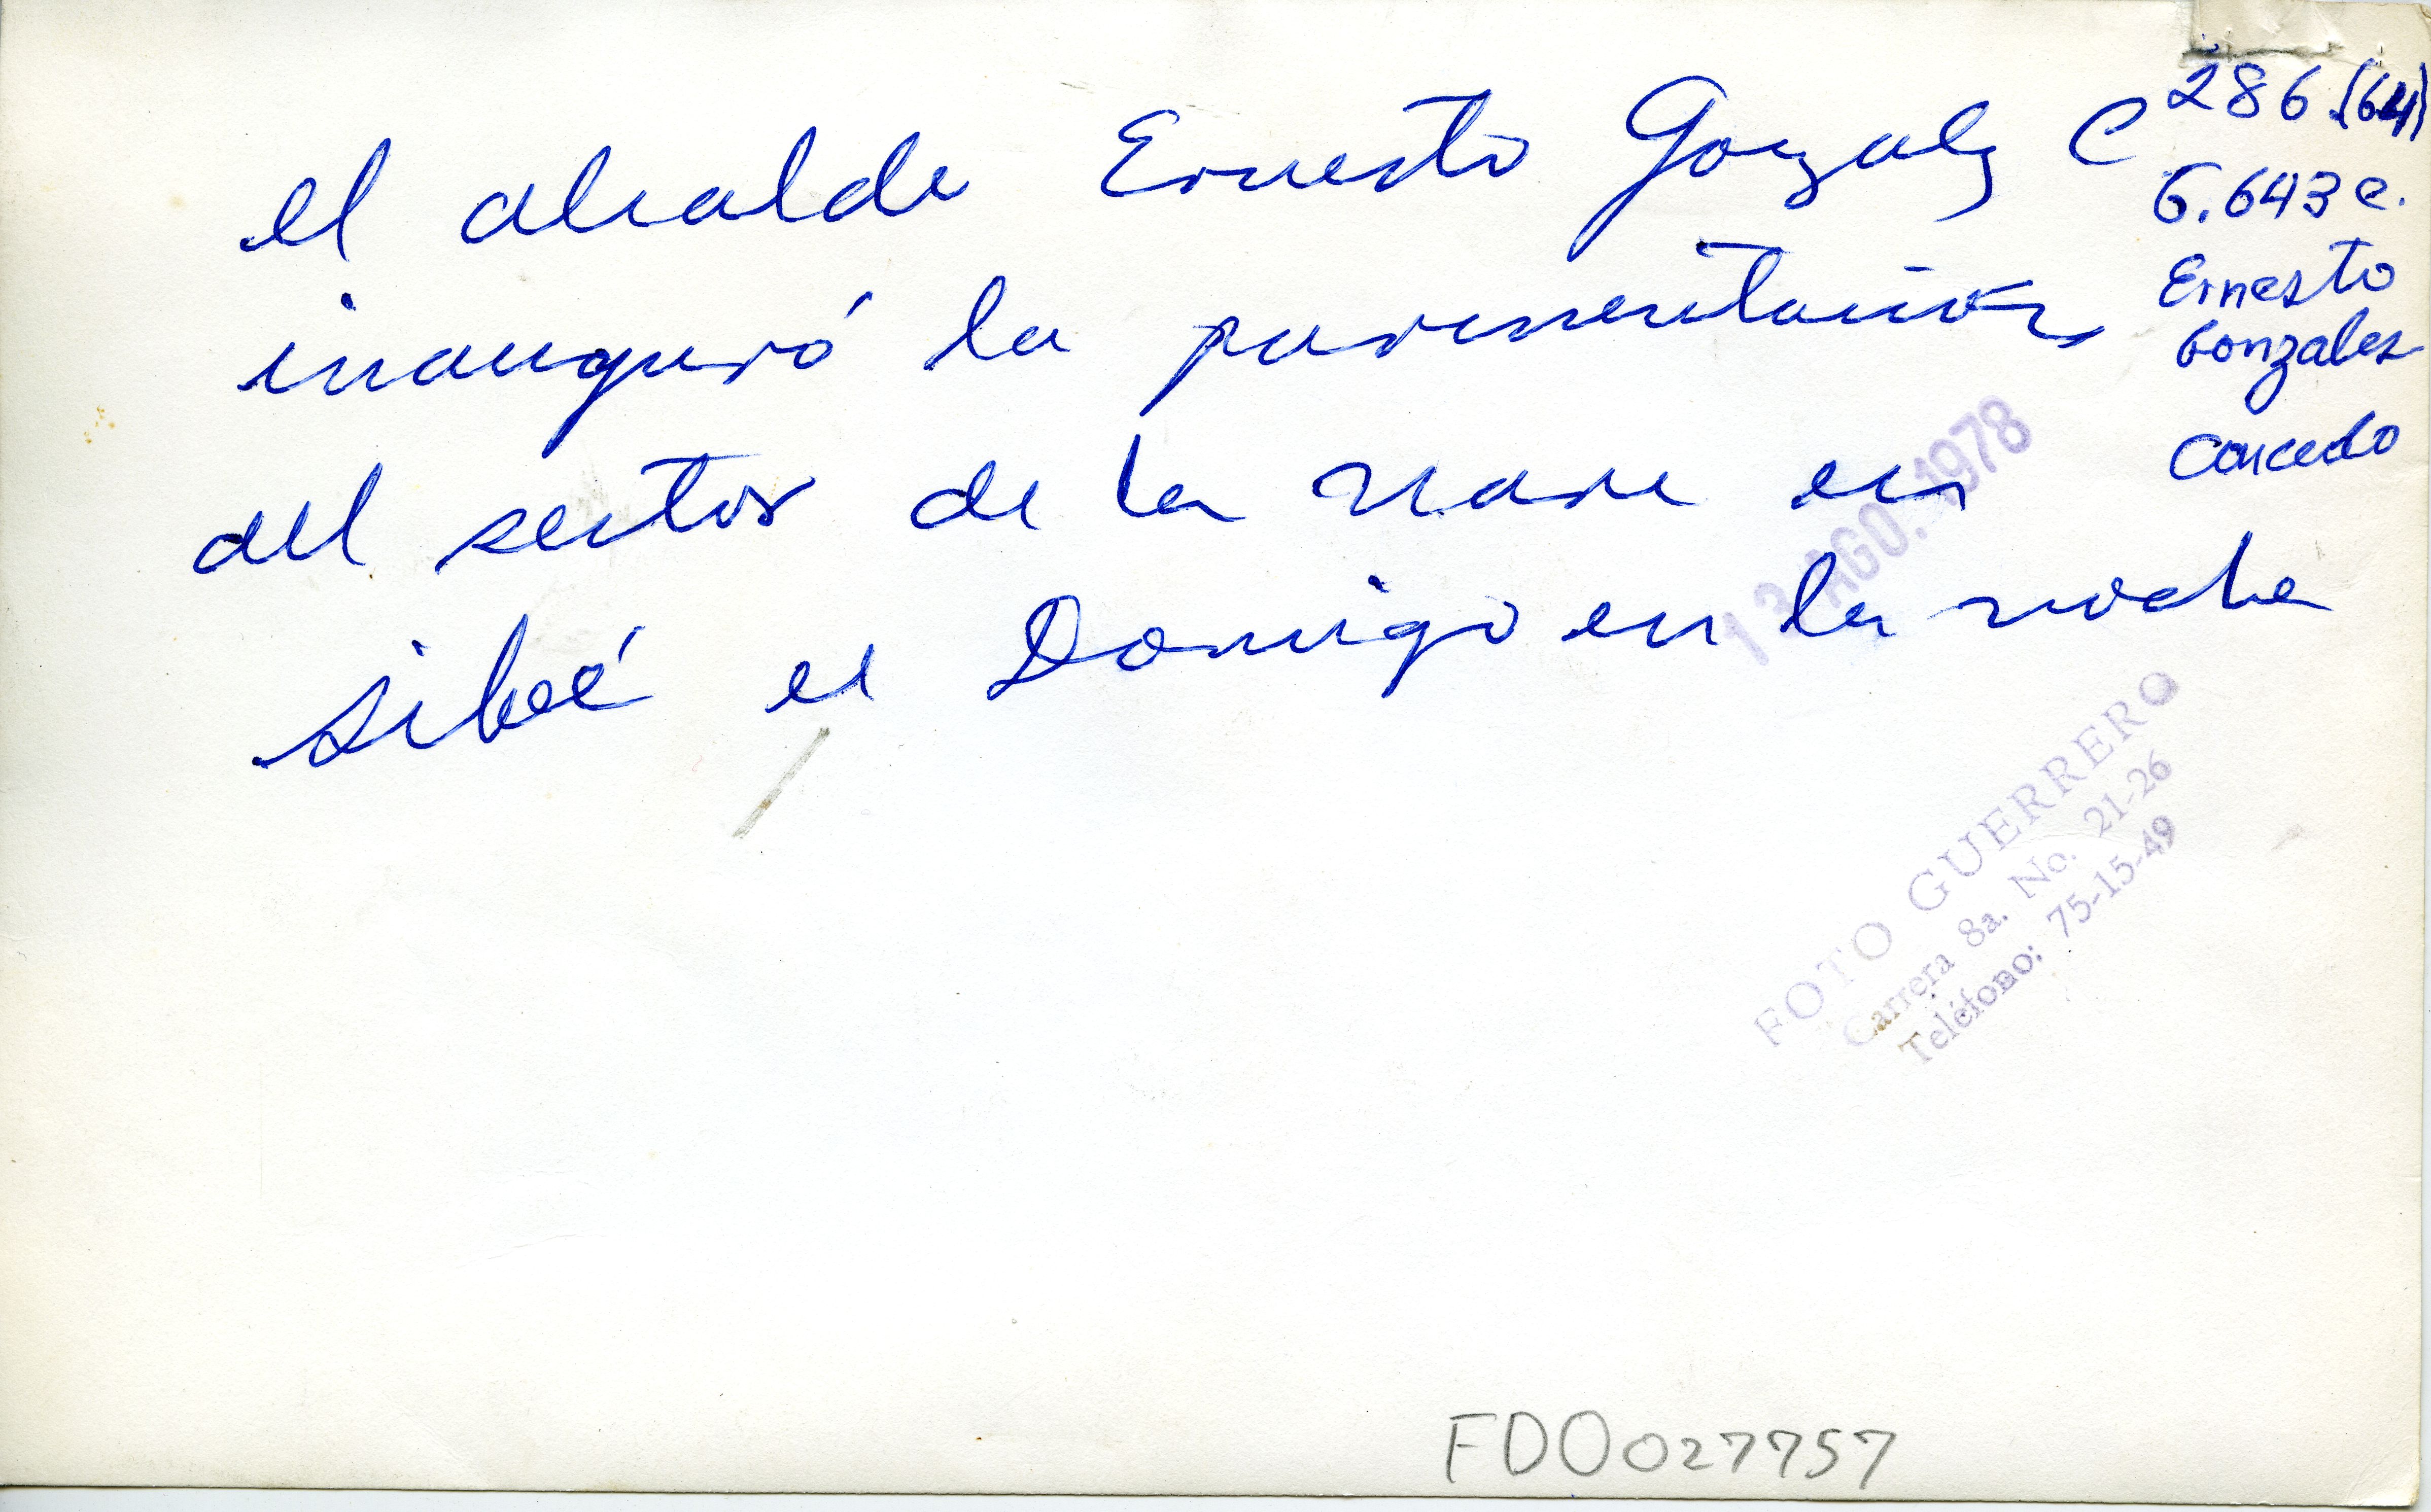 el alcalde Ernesto Gonzalz C
inauguró la pavimentación
del sector de la nave en
sibeé el Domigo en la noche
286 (64)
6.643 c.
Ernesto
Gonzales
Caicedo
13 AGO. 1978
FOTO GUERRERO
Carrera 8a. No. 21-26
Teléfono: 75-15-49
FDO027757